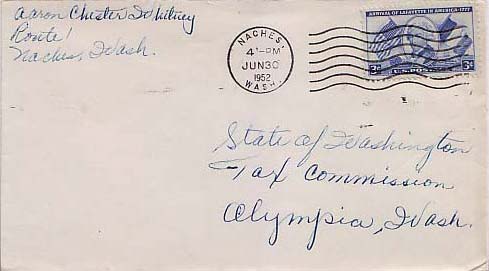 Aaron Chester Whitney
Route 1
Naches, Wash.
NACHES,
4 - PM
JUN 30
1952
WASH.
ARRIVAL OF LAFAYETTE IN AMERICA-1777
3¢ U.S. POSTAGE 3¢
State of Washington
Tax Commission
Olympia, Wash.